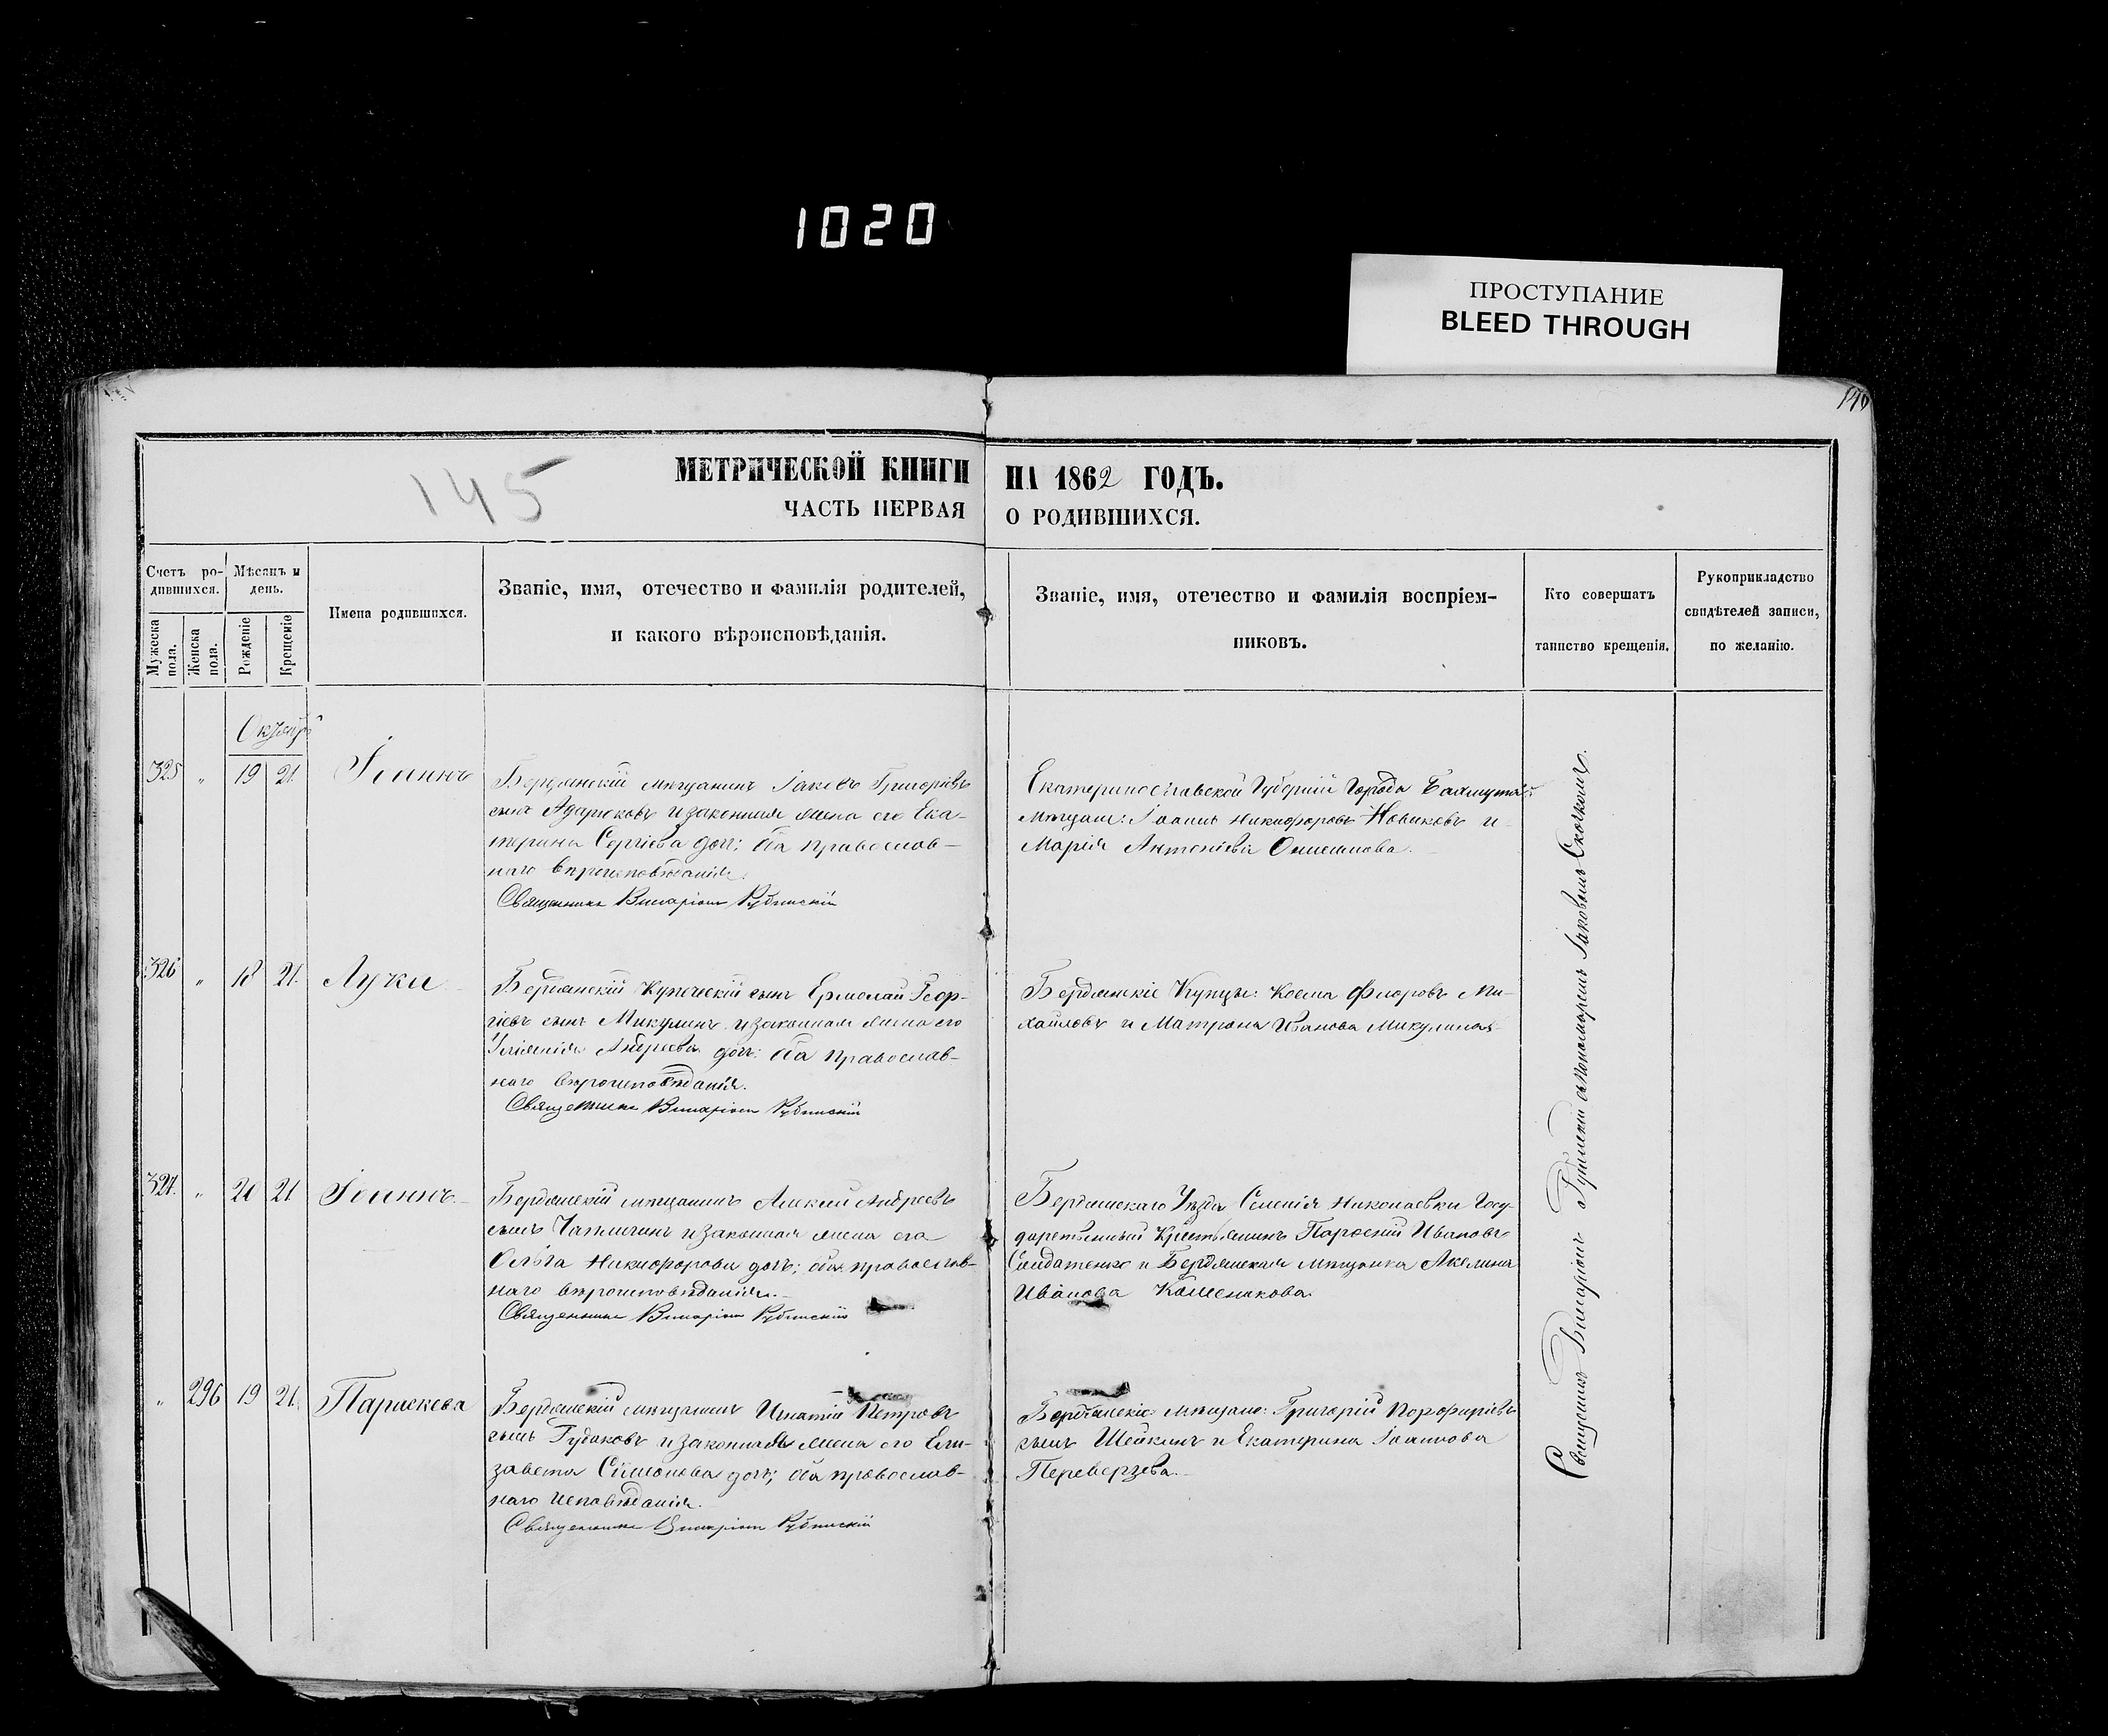 1020
ПРОСТУПАНИЕ
BLEED THROUGH
145
МЕТРИЧЕСКОЙ КНИГИ НА 1862 ГОДЪ.
ЧАСТЬ ПЕРВАЯ О РОДИВШИХСЯ.
Счетъ ро-
дившихся.
Мѣсяцъ и
день.
Мужеска
пола.
Женска
пола.
Рожденіе
Крещеніе
Имена родившихся.
Званіе, имя, отечество и фамилія родителей,
и какого вѣроисповѣданія.
Званіе, имя, отечество и фамилія воспріем-
никовъ.
Кто совершатъ
таинство крещенія.
Рукоприкладство
свидѣтелей записи,
по желанію.
325 " 19 21. Іоаннъ
Бердянскій мѣщанинъ Іаковъ Григоріевъ
сынъ Адарюковъ и законная жена его Ека-
терина Сергіева доч: оба православ-
наго вѣроисповѣданія.
Священникъ Виссаріонъ
Екатеринославской Губерніи Города Бахмута
мѣщане: Іоаннъ Никифоровъ Новиковъ и
Марія Антоніева
326 " 18 21. Луки
Бердянскій Купеческій сынъ Ермолай Геор-
гіевъ сынъ Микулинъ и законная жена его
Андреева доч: оба православ-
наго вѣроисповѣданія.
Священникъ Виссаріонъ
Бердянскіе Купцы: Косма Флоровъ Ми-
хайловъ и Матрона Иванова Микулина
327. " 20 21 Іоаннъ
Бердянскій мѣщанинъ Алексій Андреевъ
сынъ и законная жена его
Ольга Никифорова дочь; оба православ-
наго вѣроисповѣданія.
Священникъ Виссаріонъ
Бердянскаго Уѣзда Селенія Николаевки Госу-
дарственный Крестьянинъ Ивановъ
Солдатенко и Бердянская мѣщанка Акелина
Иванова
" 296 19 21. Параскева
Бердянскій мѣщанинъ Игнатій Петровъ
сынъ Гудаковъ и законная жена его Ели-
завета Симонова дочь; оба православ-
наго исповѣданія.
Священникъ Виссаріонъ
Бердянскіе мѣщане: Григорій Порфиріевъ
сынъ Шейкинъ и Екатерина Іоаннова
Переверзева.
Священникъ Виссаріонъ съ пономаремъ Іаковомъ